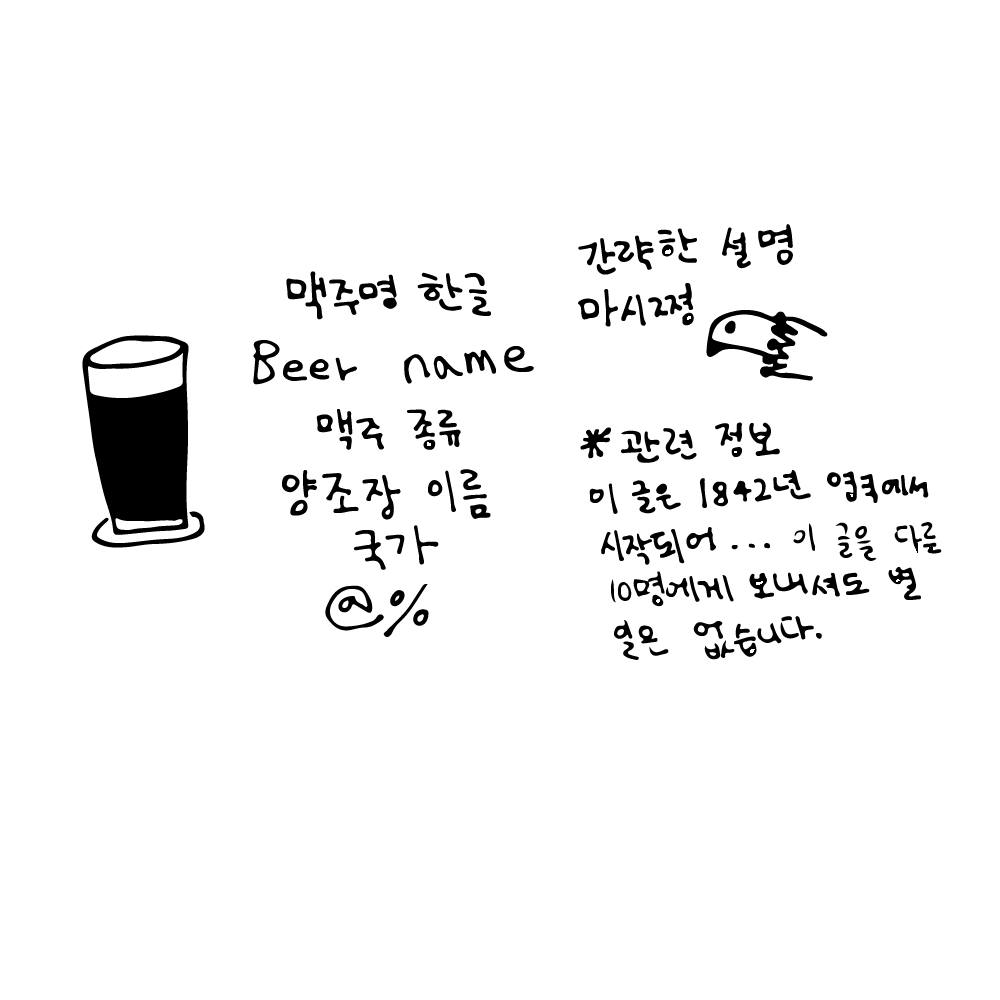 맥주명 한글
Beer name
맥주 종류
양조장 이름
국가
@%
간략한 설명
마시쪙
*관련 정보
이 글은 1842년 영국에서
시작되어 ... 이 글을 다른
10명에게 보내셔도 별
일은 없습니다.